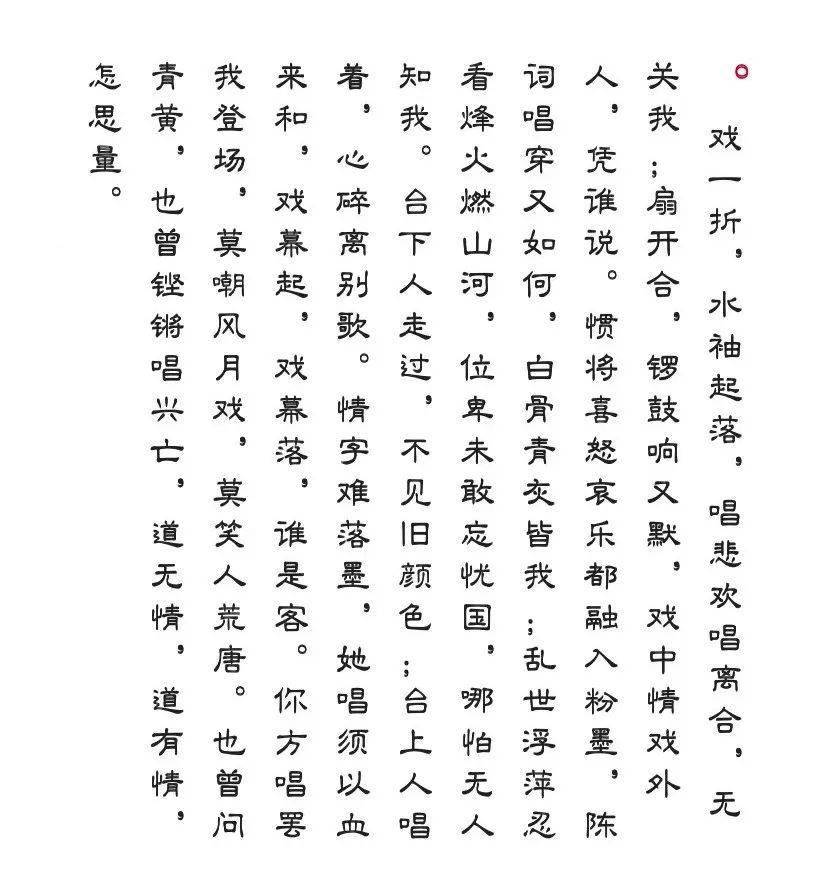 戏一折，水袖起落，唱悲欢唱离合，无
关我；扇开合，锣鼓响又默，戏中情戏外
人，凭谁说。惯将喜怒哀乐都融入粉墨，陈
词唱穿又如何，白骨青灰皆我；乱世浮萍忍
看烽火燃山河，位卑未敢忘忧国，哪怕无人
知我。台下人走过，不见旧颜色；台上人唱
着，心碎离别歌。情字难落墨，她唱须以血
来和，戏幕起，戏幕落，谁是客。你方唱罢
我登场，莫嘲风月戏，莫笑人荒唐。也曾问
青黄，也曾铿锵唱兴亡，道无情，道有情，
怎思量。